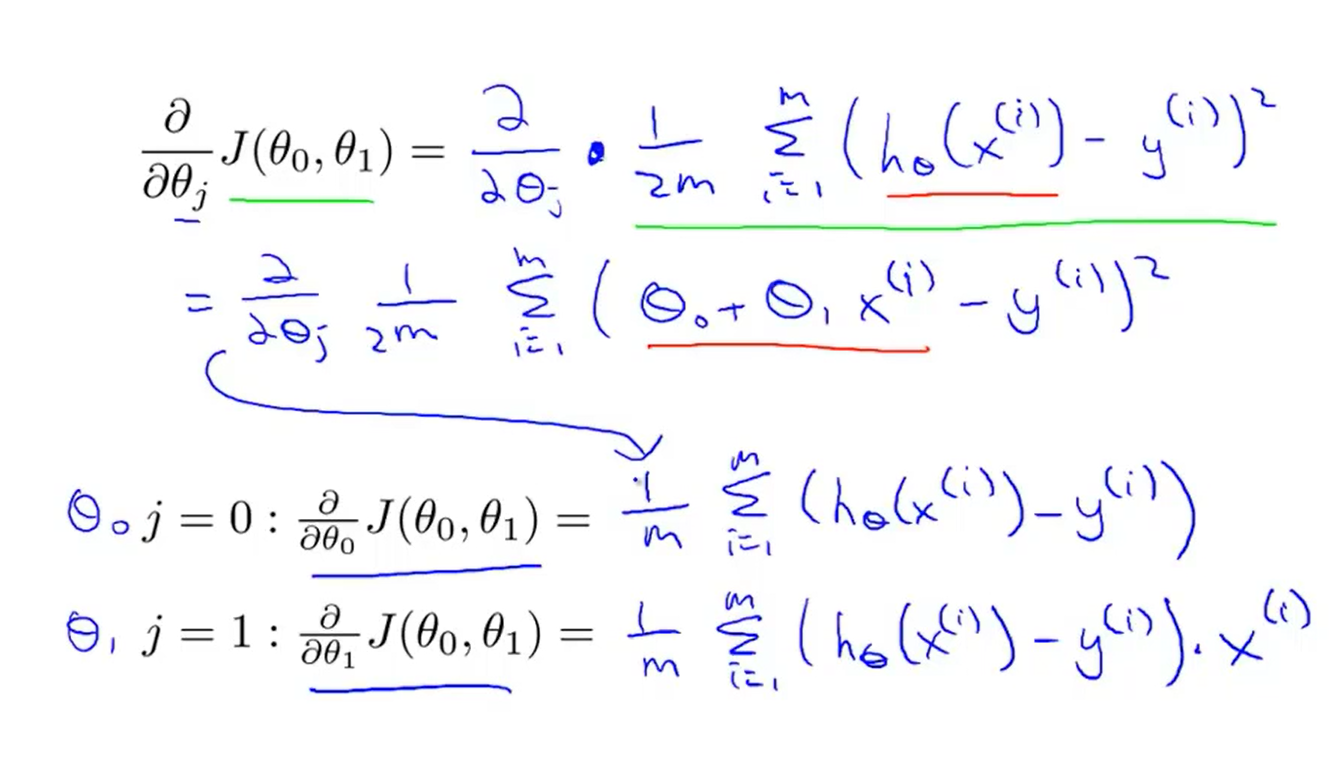 ∂/∂θ_j J(θ₀, θ₁) = ∂/∂θ_j · 1/2m Σ_{i=1}^{m} (h_θ(x^{(i)}) - y^{(i)})²
= ∂/∂θ_j 1/2m Σ_{i=1}^{m} (θ₀ + θ₁ x^{(i)} - y^{(i)})²
θ₀ j = 0 : ∂/∂θ₀ J(θ₀, θ₁) = 1/m Σ_{i=1}^{m} (h_θ(x^{(i)}) - y^{(i)})
θ₁ j = 1 : ∂/∂θ₁ J(θ₀, θ₁) = 1/m Σ_{i=1}^{m} (h_θ(x^{(i)}) - y^{(i)}) · x^{(i)}